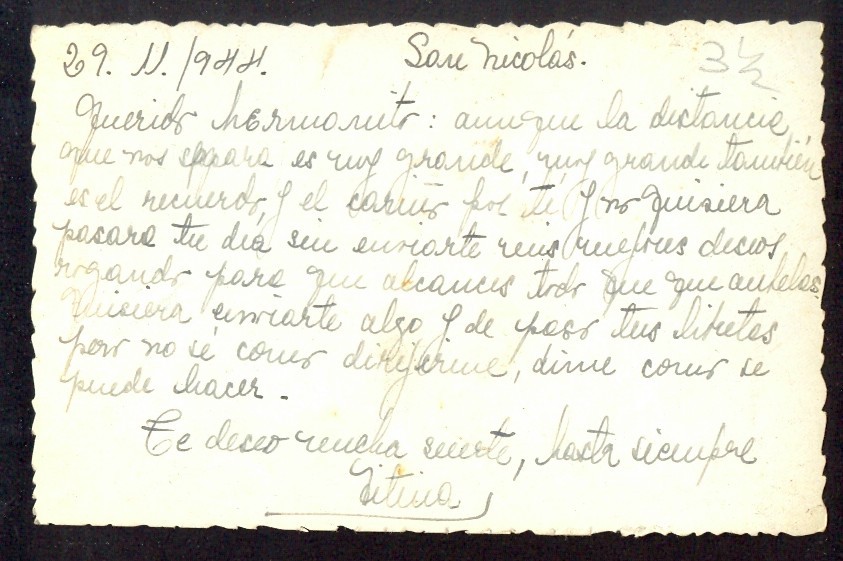 29. 11. /944. San Nicolás. 3 1/2
Querido hermanito: aunque la distancia
que nos separa es muy grande, muy grande también
es el recuerdo, y el cariño por ti y no quisiera
pasara tu día sin enviarte mis mejores deseos
rogando para que alcances todo que que anhelas.
Quisiera enviarte algo y de paso tus libretas
pero no sé como dirijirme, dime como se
puede hacer.-
Te deseo mucha suerte, hasta siempre
Titina